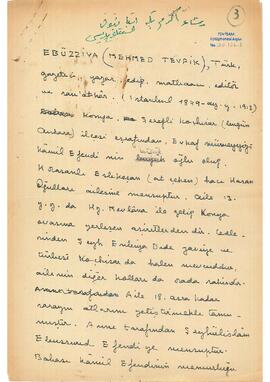 3
EBÜZZİYA (MEHMED TEVFİK), Türk,
gazeteci, yazar, edip, matbaacı, editör
ve san'atkâr. (İstanbul 1849 - ay. y. 1913)
Konya - Şerefli Koçhisar (bugün
Ankara) ilçesi eşrafından, Evkaf
Kâmil Efendi'nin oğlu olup,
Horasanlı Eslikeşan (at çeken) hacı Hasan
Oğulları ailesine mensuptur. Aile 13.
y.y. da Hz. Mevlâna ile gelip Konya
ovasına yerleşen aşiretlerden dir. Cedle-
rinden Şeyh Evliya Dede zaviye ve
türbesi Koçhisar da halen mevcuddur,
ailenin diğer kolları da orada
Aile 18. asra kadar
sarayın atlarını yetiştirmekle tanın-
mıştır. Anne tarafından Şeyhülislâm
Efendi ye mensuptur.
Babası Kâmil Efendinin memurluğu